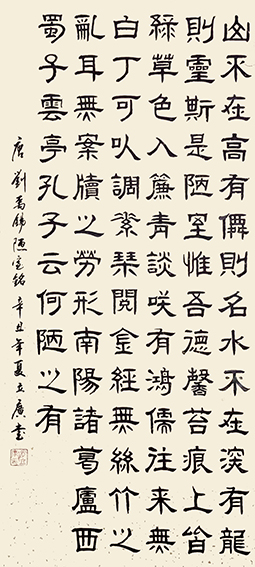 山不在高有僊則名水不在深有龍
則靈斯是陋室惟吾德馨苔痕上皆
綠草色入簾青談咲有鴻儒往來無
白丁可以調素琴閱金經無絲竹之
亂耳無案牘之勞形南陽諸葛廬西
蜀子雲亭孔子云何陋之有
唐劉禹錫陋室銘辛丑年夏立廣書